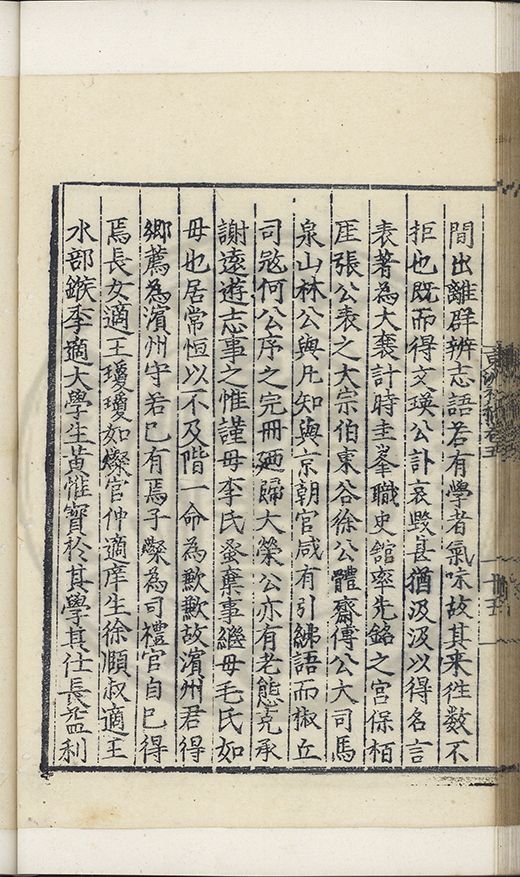 間出離群辨志語若有學者氣味故其来徃數不
拒也既而得文瑛公訃哀毀甚猶汲汲以得名言
表著為大襲計時圭峯職史館寔先銘之宮保栢
厓張公表之大宗伯東谷徐公體齋傅公大司馬
泉山林公與凡知與京朝官咸有引紼語而椒丘
司宼何公序之完冊廼歸大榮公亦有老態克承
謝遠遊志事之惟謹母李氏蚤棄事繼母毛氏如
母也居常恒以不及階一命為歉歉故濱州君得
鄉薦為濱州守若已有焉子爕為司禮官自已得
焉長女適王瓊瓊如爕官仲適庠生徐顒叔適王
水部鏃李適大學生黃惟寳於其學其仕長益利